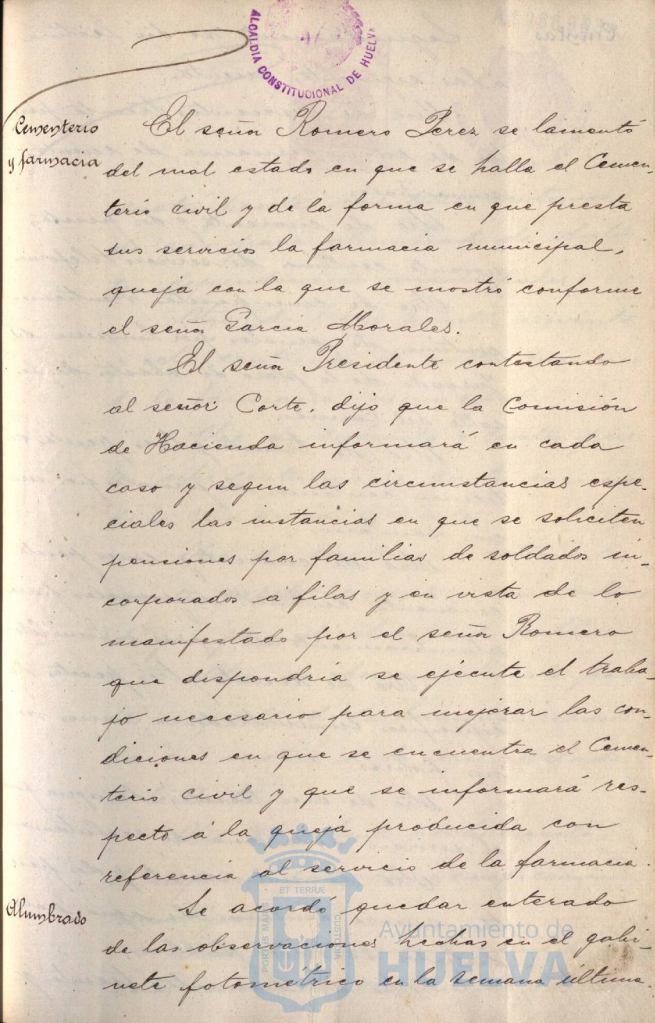 ALCALDÍA CONSTITUCIONAL DE HUELVA
Cementerio
y farmacia
El señor Romero Perez se lamentó
del mal estado en que se halla el Cemen-
terio civil y de la forma en que presta
sus servicios la farmacia municipal,
queja con la que se mostró conforme
el señor Garcia Morales.
El señor Presidente contestando
al señor Corte, dijo que la Comisión
de Hacienda informará en cada
caso y segun las circunstancias espe-
ciales las instancias en que se soliciten
pensiones por familias de soldados in-
corporados á filas y en vista de lo
manifestado por el señor Romero
que dispondria se ejecute el traba-
jo necesario para mejorar las con-
diciones en que se encuentra el Cemen-
terio civil y que se informará res-
pecto á la queja producida con
referencia al servicio de la farmacia.
Alumbrado
Se acordó quedar enterado
de las observaciones hechas en el gabi-
nete fotométrico en la semana última.
ET TERRÆ
PORTUS MARIS
CUSTODIA
Ayuntamiento de
HUELVA